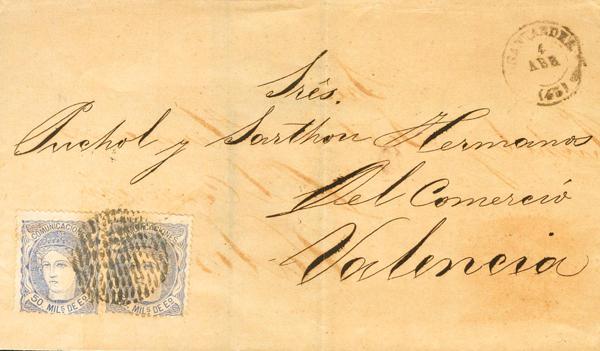 SANTANDER
4
ABR
(43)
Srēs.
Puchol y Sarthou Hermanos
Del Comercio
Valencia
COMUNICACIONES
50 MILS DE EO
50 MILS DE EO